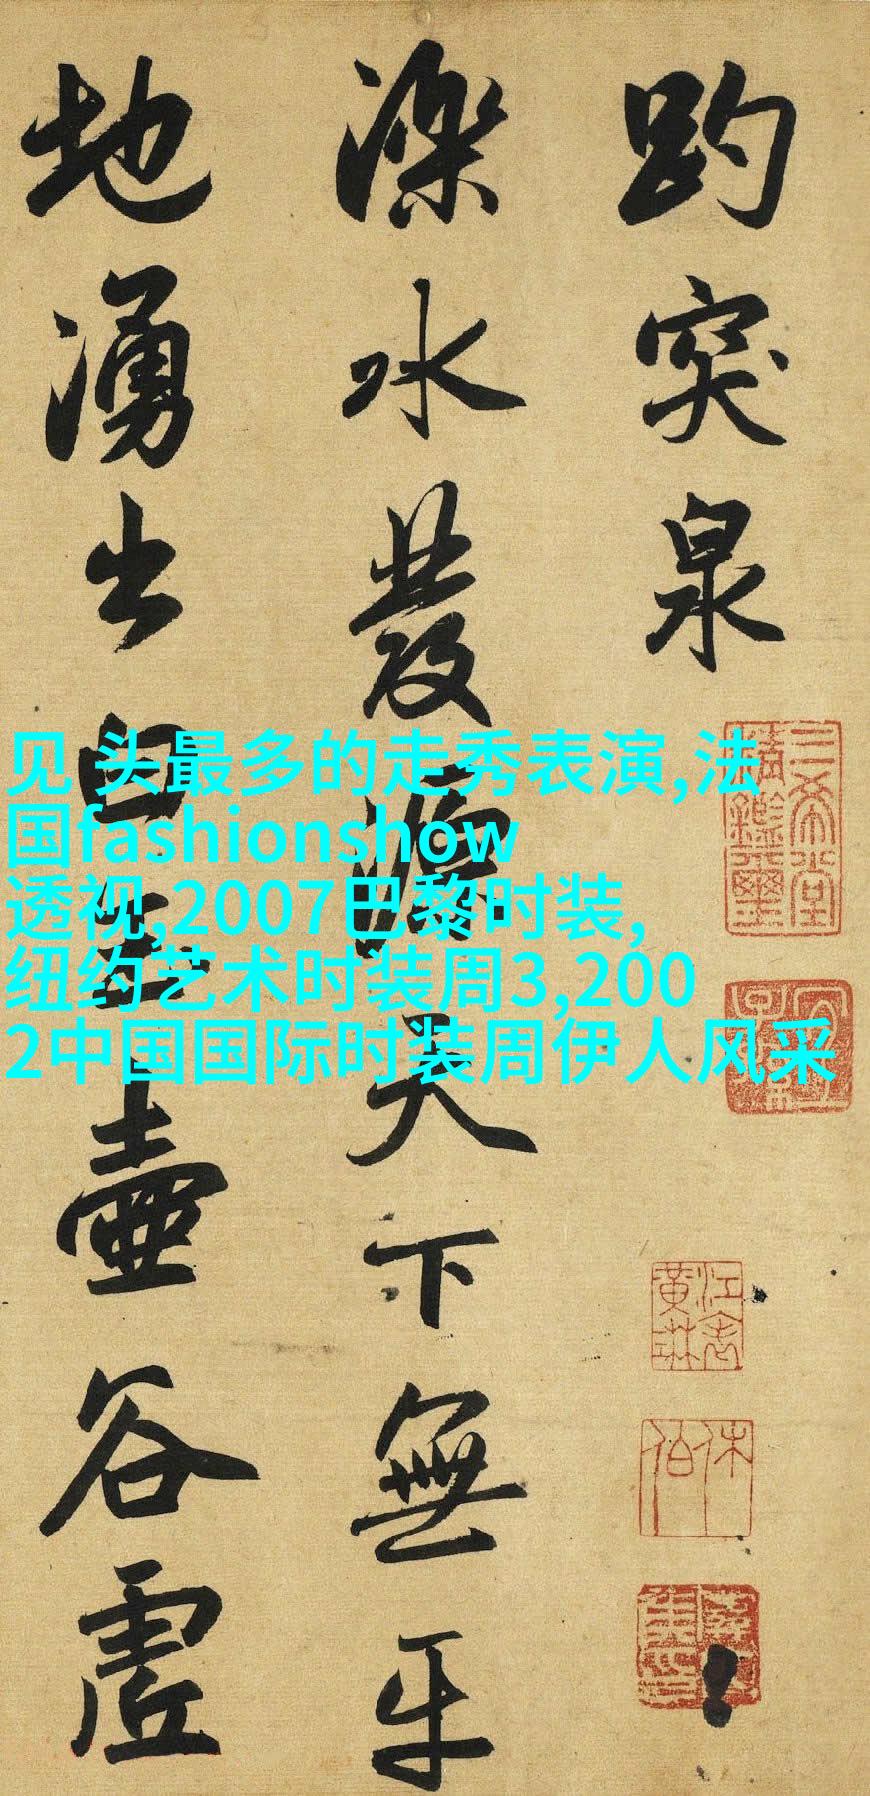 趵突泉
濼水發源天下無平
地湧出白玉壺谷虛
见 头最多的走秀表演,法
国fashionshow
透视,2007巴黎时装,
纽约艺术时装周3,200
2中国国际时装周伊人风采
三希堂
精鑑璽
宜子
孫